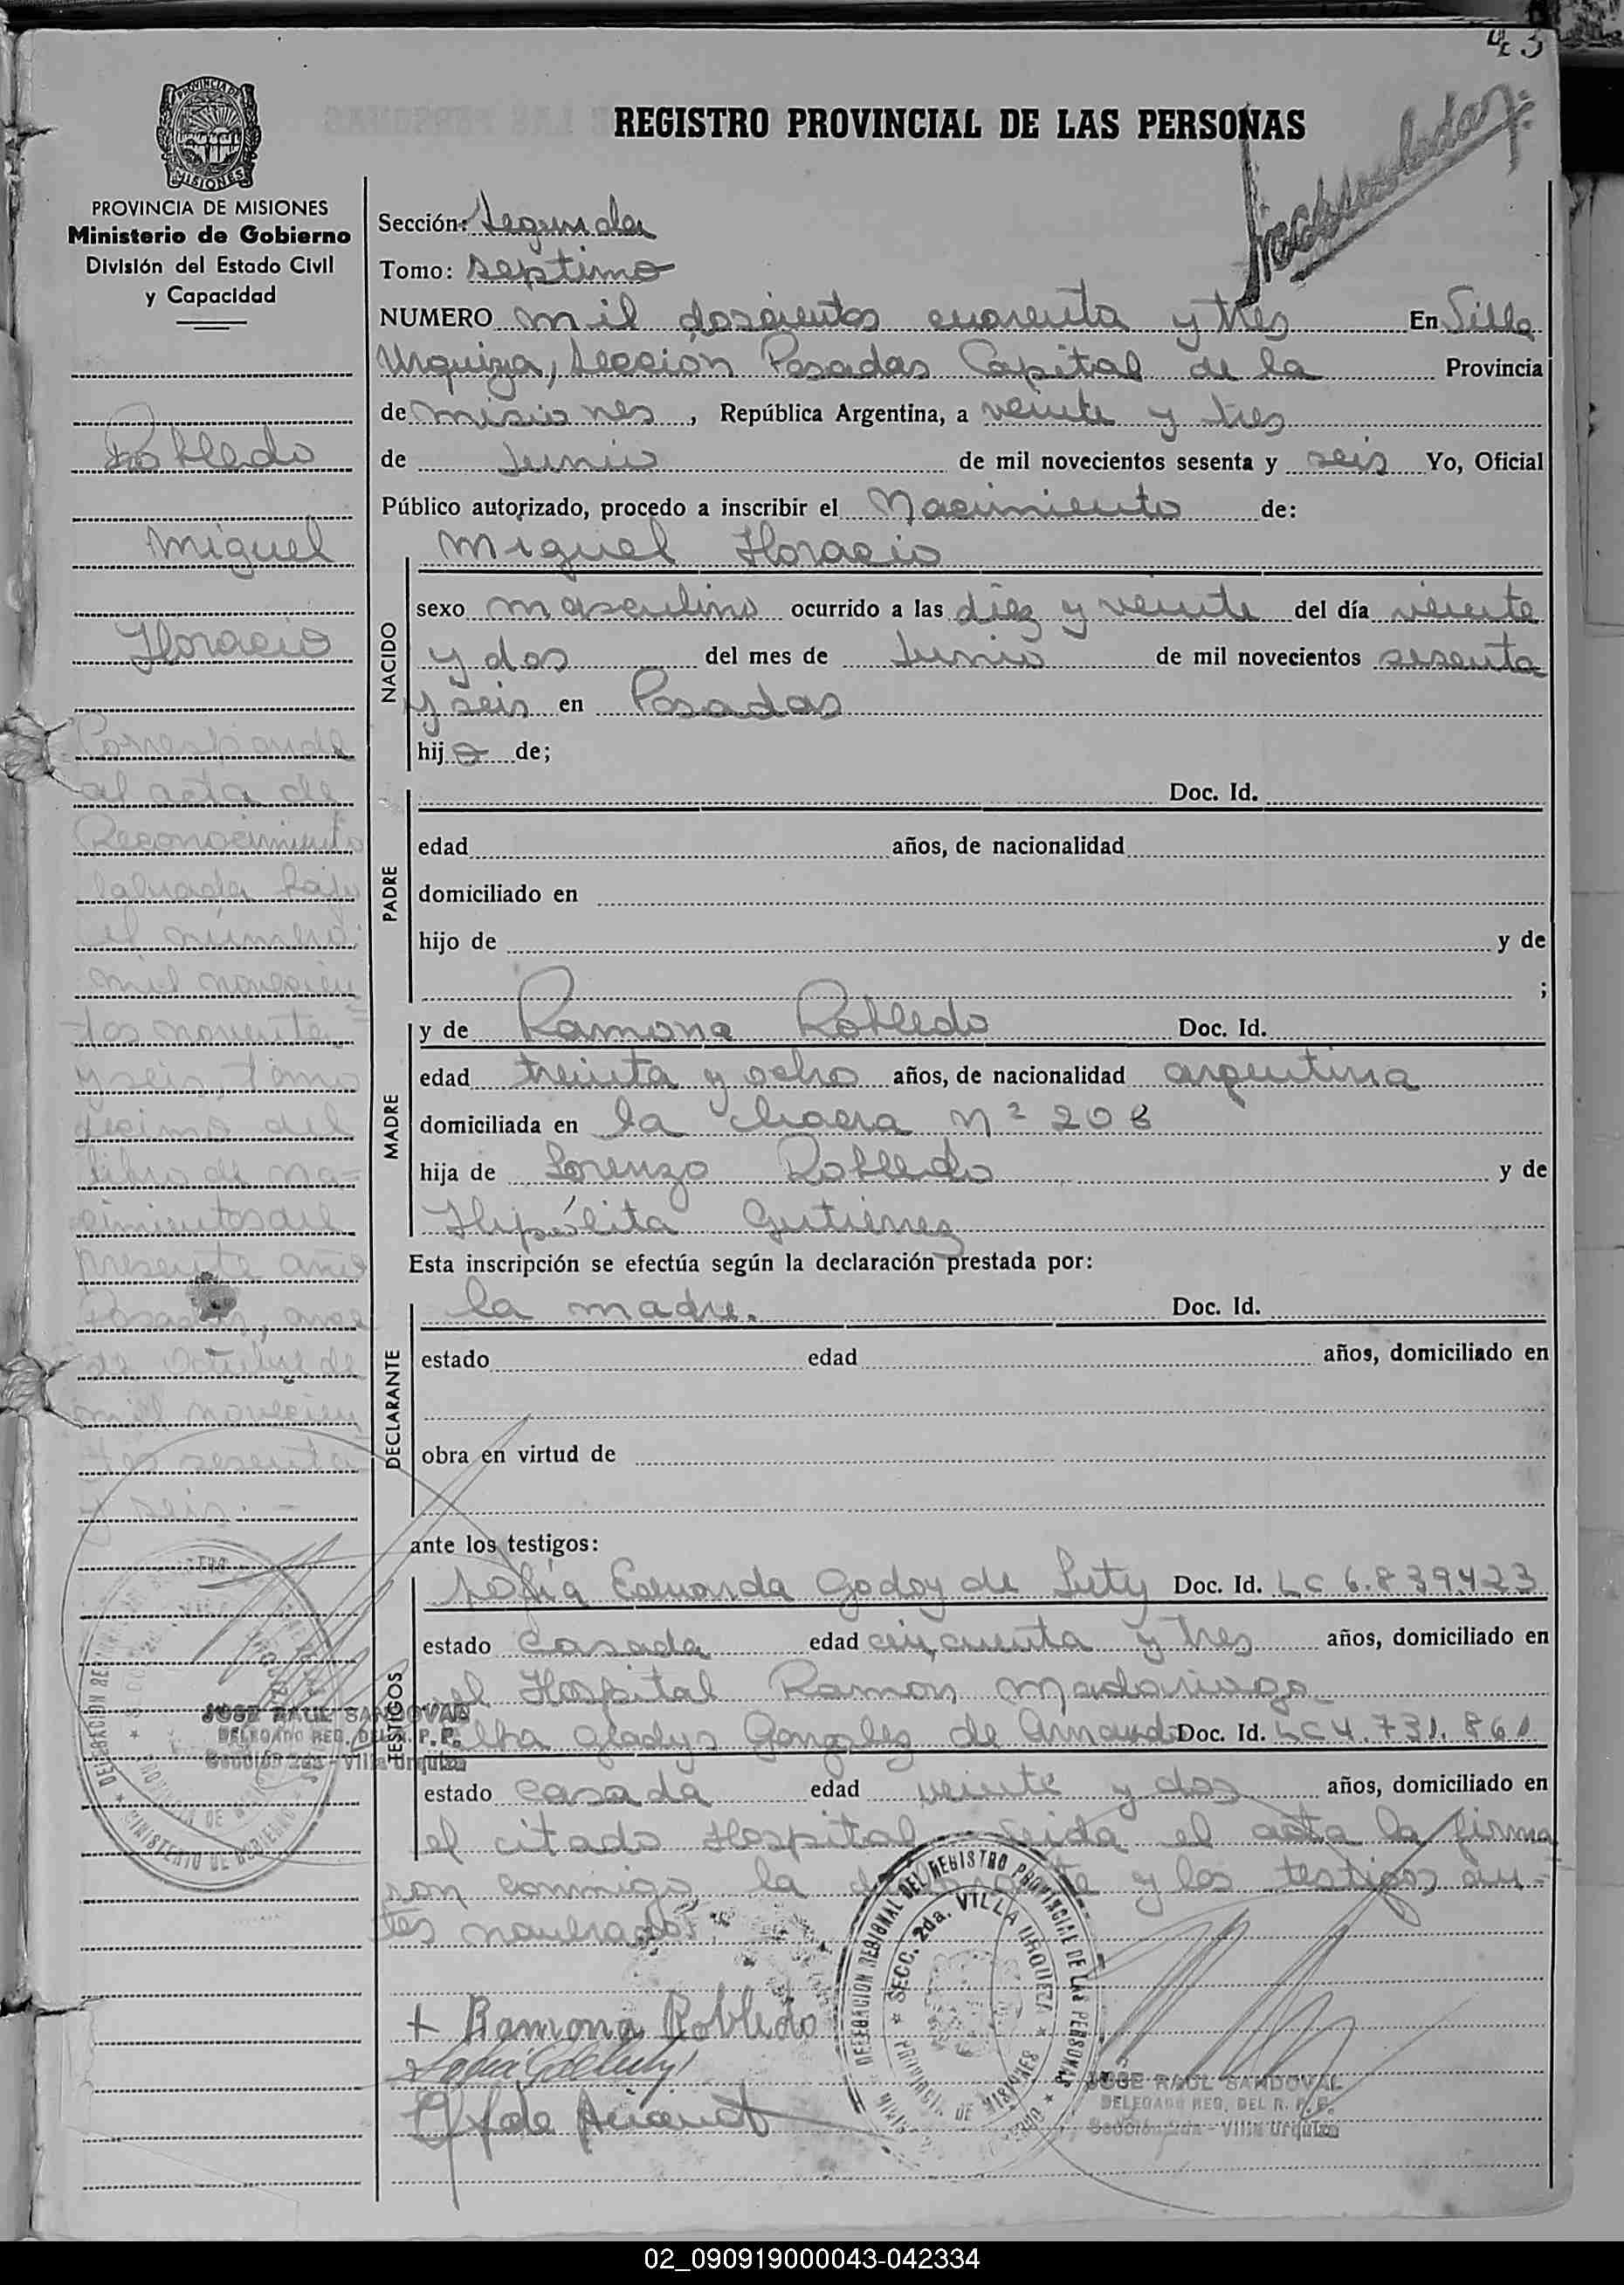 43
REGISTRO PROVINCIAL DE LAS PERSONAS
PROVINCIA DE MISIONES
Ministerio de Gobierno
División del Estado Civil
y Capacidad
Sección: Segunda
Tomo: septimo
NUMERO mil doscientos cuarenta y tres En Villa
Urquiza, Sección Posadas Capital de la Provincia
de misiones, República Argentina, a veinte y tres
de Junio de mil novecientos sesenta y seis Yo, Oficial
Público autorizado, procedo a inscribir el Nacimiento de:
Robledo
Miguel
Horacio
Corresponde
al acta de
Reconocimiento
labrada bajo
el número:
mil novecien
tos noventa
y seis, tomo
decimo del
libro de na=
cimientos del
presente año
Posadas, once
de Octubre de
mil novecien
tos sesenta
y seis.-
NACIDO
Miguel Horacio
sexo masculino ocurrido a las diez y veinte del día veinte
y dos del mes de Junio de mil novecientos sesenta
y seis en Posadas
hijo de;
PADRE
Doc. Id.
edad años, de nacionalidad
domiciliado en
hijo de y de
;
MADRE
y de Ramona Robledo Doc. Id.
edad treinta y ocho años, de nacionalidad argentina
domiciliada en la chacra Nº 208
hija de Lorenzo Robledo y de
Hipólita Gutierrez
Esta inscripción se efectúa según la declaración prestada por:
DECLARANTE
la madre. Doc. Id.
estado edad años, domiciliado en
obra en virtud de
ante los testigos:
TESTIGOS
Sofía Eduarda Godoy de Luty Doc. Id. LC 6.839.423
estado casada edad cincuenta y tres años, domiciliado en
el Hospital Ramón Madariaga
Elba Gladys Gonzalez de Doc. Id. LC 4.731.861
estado casada edad veinte y dos años, domiciliado en
el citado Hospital. Leida el acta la firma
ron conmigo, la declarante y los testigos an=
tes nombrados.
+ Ramona Robledo
DELEGACION REGIONAL DEL REGISTRO PROVINCIAL DE LAS PERSONAS
SECC. 2da. VILLA URQUIZA
PROVINCIA DE MISIONES
JOSE RAUL SANDOVAL
DELEGADO REG. DEL R. P. P.
Sección 2da - Villa Urquiza
MINISTERIO DE GOBIERNO
JOSE RAUL SANDOVAL
DELEGADO REG. DEL R. P. P.
Sección 2da - Villa Urquiza
02_090919000043-042334